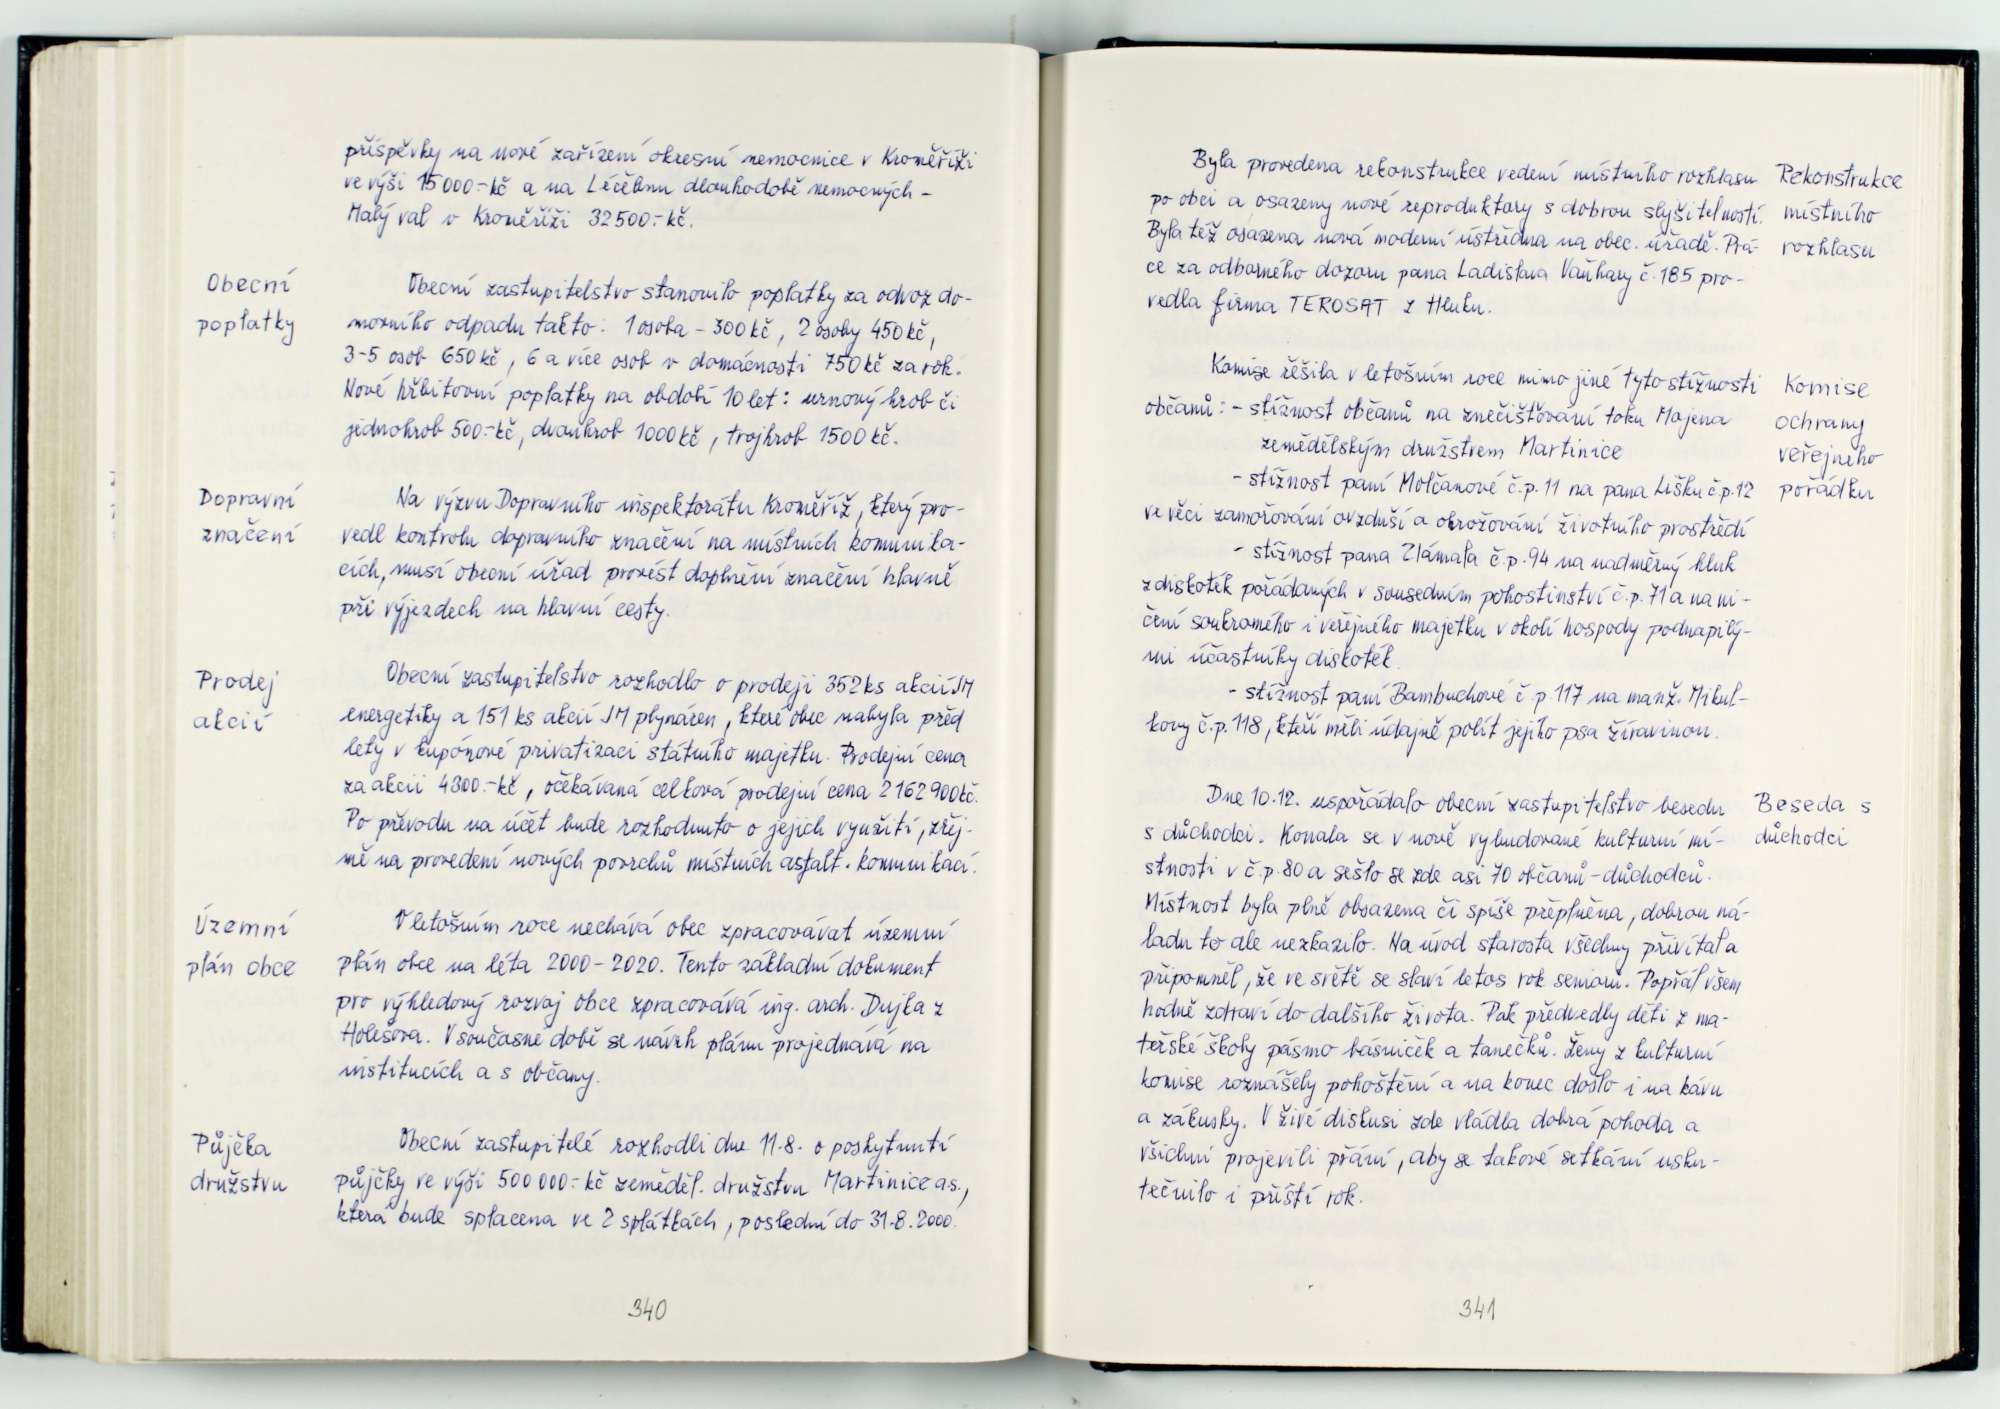 příspěvky na nové zařízení okresní nemocnice v Kroměříži
ve výši 15 000.- kč a na Léčebnu dlouhodobě nemocných -
Malý val v Kroměříži 32 500.- kč.
Obecní
poplatky
Obecní zastupitelstvo stanovilo poplatky za odvoz do-
movního odpadu takto: 1 osoba - 300 kč, 2 osoby 450 kč,
3-5 osob 650 kč, 6 a více osob v domácnosti 750 kč za rok.
Nové hřbitovní poplatky na období 10 let: urnový hrob či
jednohrob 500.- kč, dvouhrob 1000 kč, trojhrob 1500 kč.
Dopravní
značení
Na výzvu Dopravního inspektorátu Kroměříž, který pro-
vedl kontrolu dopravního značení na místních komunika-
cích, musí obecní úřad provést doplnění značení hlavně
při výjezdech na hlavní cesty.
Prodej
akcií
Obecní zastupitelstvo rozhodlo o prodeji 352 ks akcií JM
energetiky a 151 ks akcií JM plynáren, které obec nabyla před
lety v kupónové privatizaci státního majetku. Prodejní cena
za akcii 4300.- kč, očekávaná celková prodejní cena 2 162 900 kč.
Po převodu na účet bude rozhodnuto o jejich využití, zřej-
mě na provedení nových povrchů místních asfalt. komunikací.
Územní
plán obce
V letošním roce nechává obec zpracovávat územní
plán obce na léta 2000 - 2020. Tento základní dokument
pro výhledový rozvoj obce zpracovává ing. arch. Dujka z
Holešova. V současné době se návrh plánu projednává na
institucích a s občany.
Půjčka
družstvu
Obecní zastupitelé rozhodli dne 11.8. o poskytnutí
půjčky ve výši 500 000.- kč zeměděl. družstvu Martinice as.,
která bude splacena ve 2 splátkách, poslední do 31.8.2000.
340
Byla provedena rekonstrukce vedení místního rozhlasu
po obci a osazeny nové reproduktory s dobrou slyšitelností.
Byla též osazena nová moderní ústředna na obec. úřadě. Prá-
ce za odborného dozoru pana Ladislava Vaňhary č. 185 pro-
vedla firma TEROSAT z Hluku.
Rekonstrukce
místního
rozhlasu
Komise řešila v letošním roce mimo jiné tyto stížnosti
občanů: - stížnost občanů na znečišťování toku Mojena
zemědělským družstvem Martinice
- stížnost paní Molčanové č.p. 11 na pana Lišku č.p. 12
ve věci zamořování ovzduší a ohrožování životního prostředí
- stížnost pana Zlámala č.p. 94 na nadměrný hluk
z diskoték pořádaných v sousedním pohostinství č.p. 71 a na ni-
čení soukromého i veřejného majetku v okolí hospody podnapilý-
mi účastníky diskoték.
- stížnost paní Bambuchové č.p. 117 na manž. Mikul-
kovy č.p. 118, kteří měli údajně polít jejího psa žíravinou.
Komise
ochrany
veřejného
pořádku
Dne 10.12. uspořádalo obecní zastupitelstvo besedu
s důchodci. Konala se v nově vybudované kulturní mí-
stnosti v č.p. 80 a sešlo se zde asi 70 občanů - důchodců.
Místnost byla plně obsazena či spíše přeplněna, dobrou ná-
ladu to ale nezkazilo. Na úvod starosta všechny přivítal a
připomněl, že ve světě se slaví letos rok seniorů. Popřál všem
hodně zdraví do dalšího života. Pak předvedly děti z ma-
teřské školy pásmo básniček a tanečků. Ženy z kulturní
komise roznášely pohoštění a na konec došlo i na kávu
a zákusky. V živé diskusi zde vládla dobrá pohoda a
všichni projevili přání, aby se takové setkání usku-
tečnilo i příští rok.
Beseda s
důchodci
341